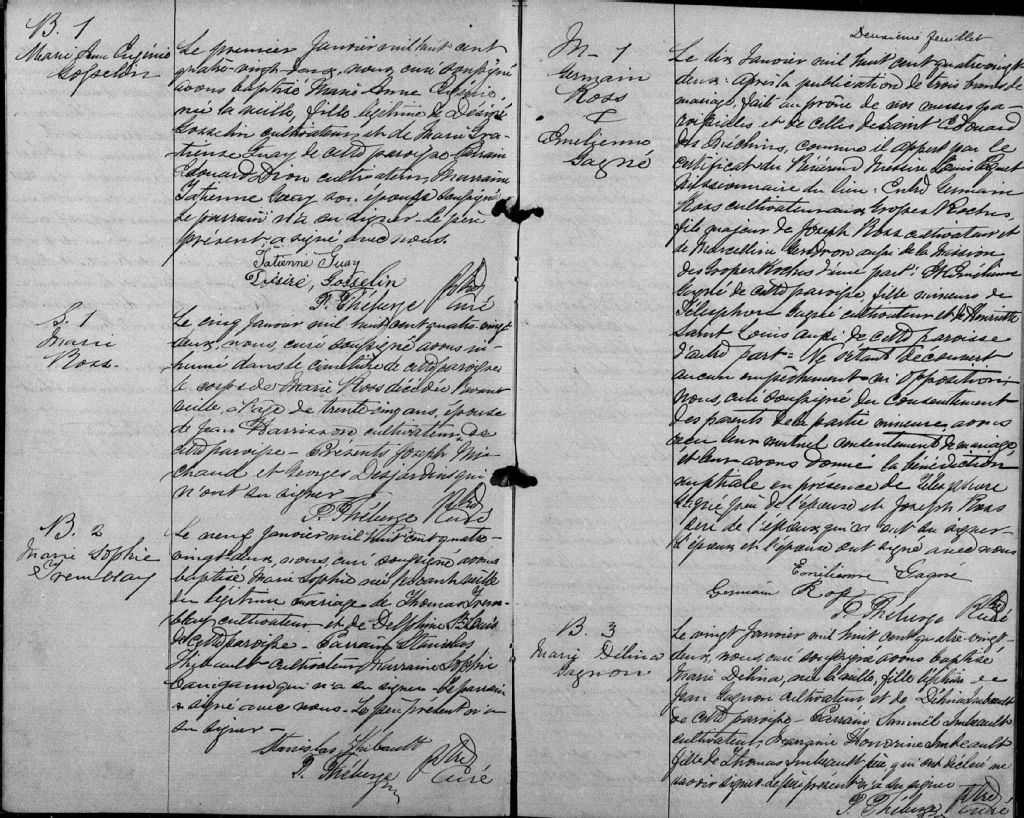 B. 1
Marie Anne Eugénie
Gosselin
Le premier Janvier mil huit cent
quatre-vingt-deux, nous curé soussigné
avons baptisé Marie Anne Eugénie
née la veille, fille légitime de Désiré
Gosselin cultivateur et de Marie Gra-
tieuse Guay de cette paroisse. Parrain
Edouard Dion cultivateur, Marraine
Tatienne Guay son épouse soussignée
Le parrain n'a su signer. Le père
présent a signé avec nous.
Tatienne Guay
Désiré, Gosselin
P. Théberge Ptre
Curé
S. 1
Marie
Ross.
Le cinq Janvier mil huit cent quatre-vingt
deux, nous, curé soussigné avons in-
humé dans le cimetière de cette paroisse
le corps de Marie Ross décédée l'avant
veille, à l'âge de trente cinq ans, épouse
de Jean Harrisson cultivateur de
cette paroisse - Présents Joseph Mi-
chaud et Georges Desjardins qui
n'ont su signer
P. Théberge Ptre
Curé
B. 2
Marie Sophie
Tremblay
Le neuf Janvier mil huit cent quatre-
vingt-deux, nous curé soussigné avons
baptisé Marie Sophie née l'avant veille
du légitime mariage de Thomas Trem-
blay cultivateur et de Delphine St Louis
de cette paroisse - Parrain Stanislas
Thibault cultivateur, Marraine Sophie
qui n'a su signer. Le parrain
a signé avec nous. Le père présent n'a
su signer -
Stanislas Thibault
P. Théberge Ptre
Curé
Deuxième feuillet
M - 1
Germain
Ross
&
Emilienne
Gagné
Le dix Janvier mil huit cent quatre vingt
deux: après la publication de trois bans de
mariage, faite au prône de nos messes pa-
roissiales et de celles de Saint Edouard
des Méchins, comme il appert par le
certificat du Révérend Messire Louis
Missionnaire du lieu: Entre Germain
Ross cultivateur aux Grosses Roches,
fils majeur de Joseph Ross cultivateur et
de Marcelline Gendron aussi de la mission
des Grosses Roches d'une part: Et Emilienne
Gagné de cette paroisse, fille mineure de
Télesphore Gagné cultivateur et de Henriette
Saint Louis aussi de cette paroisse
d'autre part = Ne s'étant découvert
aucun empêchement ni opposition
nous, curé soussigné du consentement
des parents de la partie mineure, avons
reçu leur mutuel consentement de mariage,
et leur avons donné la bénédiction
nuptiale en présence de Télesphore
Gagné père de l'épouse et Joseph Ross
père de l'époux qui n'ont su signer
L'époux et l'épouse ont signé avec nous
Emilienne Gagné
Germain Ross
P. Théberge Ptre
Curé
B. 3
Marie Délina
Gagnon
Le vingt Janvier mil huit cent quatre vingt-
deux, nous, curé soussigné avons baptisé
Marie Délina, née la veille, fille légitime de
Jean Gagnon cultivateur et de Délina Imbeault
de cette paroisse - Parrain Samuël Imbeault
cultivateur, Marraine Honorine Imbeault
fille de Thomas Imbeault qui ont déclaré ne
savoir signer. Le père présent n'a su signer
P. Théberge Ptre
Curé